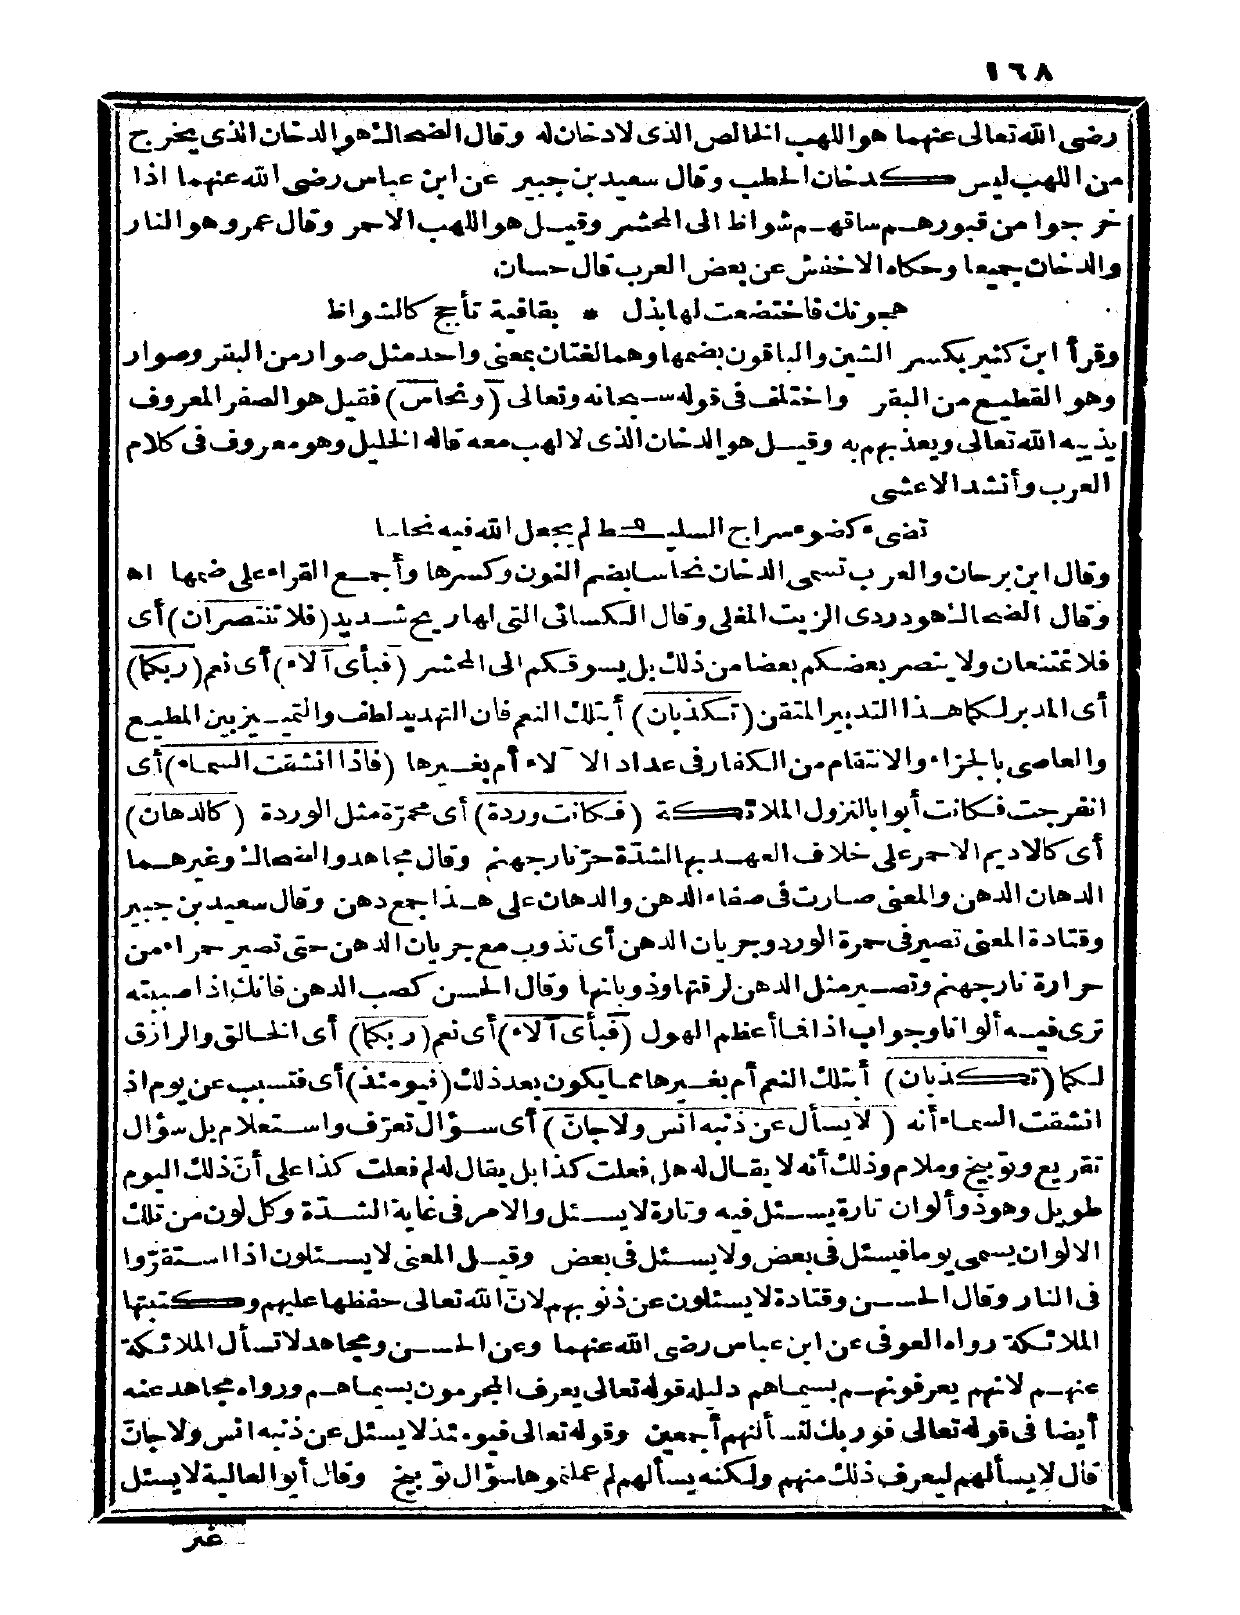 ١٦٨
رضى الله تعالى عنهما هو اللهب الخالص الذى لادخان له وقال الضحاك هو الدخان الذى يخرج
من اللهب ليس كدخان الحطب وقال سعيد بن جبير عن ابن عباس رضى الله عنهما اذا
خرجوا من قبورهم ساقهم شواظ الى المحشر وقيل هو اللهب الاحمر وقال عمرو هو النار
والدخان جميعا وحكاه الاخفش عن بعض العرب قال حسان
هجوتك فاختضعت لها بذل * بقافية تأجج كالشواظ
وقرأ ابن كثير بكسر الشين والباقون بضمها وهما لغتان بمعنى واحد مثل صوار من البقر وصوار
وهو القطيع من البقر واختلف فى قوله سبحانه وتعالى (ونحاس) فقيل هو الصفر المعروف
يذيبه الله تعالى ويعذبهم به وقيل هو الدخان الذى لا لهب معه قاله الخليل وهو معروف فى كلام
العرب وأنشد الاعشى
تضىء كضوء سراج السليط لم يجعل الله فيه نحاسا
وقال ابن برحان والعرب تسمى الدخان نحاسا بضم النون وكسرها وأجمع القراء على ضمها اه
وقال الضحاك هو دردى الزيت المغلى وقال الكسائى التى لها ريح شديد (فلا تنتصران) أى
فلا تمتنعان ولا ينصر بعضكم بعضا من ذلك بل يسوقكم الى المحشر (فبأى آلاء) أى نعم (ربكما)
أى المدبر لكما هذا التدبير المتقن (تكذبان) أبتلك النعم فان التهديد لطف والتمييز بين المطيع
والعاصى بالجزاء والانتقام من الكفار فى عداد الآلاء أم بغيرها (فاذا انشقت السماء) أى
انفرجت فكانت أبوابا لنزول الملائكة (فكانت وردة) أى محمرّة مثل الوردة (كالدهان)
أى كالاديم الاحمر على خلاف العهد بها لشدّة حرّ نار جهنم وقال مجاهد والضحاك وغيرهما
الدهان الدهن والمعنى صارت فى صفاء الدهن والدهان على هذا جمع دهن وقال سعيد بن جبير
وقتادة المعنى تصير فى حمرة الورد وجريان الدهن أى تذوب مع جريان الدهن حتى تصير حمراء من
حرارة نار جهنم وتصير مثل الدهن لرقتها وذوبانها وقال الحسن كصب الدهن فانك اذا صببته
ترى فيه ألوانا وجواب اذا فما أعظم الهول (فبأى آلاء) أى نعم (ربكما) أى الخالق والرازق
لكما (تكذبان) أبتلك النعم أم بغيرها مما يكون بعد ذلك (فيومئذ) أى فتسبب عن يوم اذ
انشقت السماء أنه (لا يسأل عن ذنبه انس ولا جانّ) أى سؤال تعرّف واستعلام بل سؤال
تقريع وتوبيخ وملام وذلك أنه لا يقال له هل فعلت كذا بل يقال له لم فعلت كذا على أنّ ذلك اليوم
طويل وهو ذو ألوان تارة يسئل فيه وتارة لا يسئل والامر فى غاية الشدّة وكل لون من تلك
الالوان يسمى يوما فيسئل فى بعض ولا يسئل فى بعض وقيل المعنى لا يسئلون اذا استقرّوا
فى النار وقال الحسن وقتادة لا يسئلون عن ذنوبهم لانّ الله تعالى حفظها عليهم وكتبتها
الملائكة رواه العوفى عن ابن عباس رضى الله عنهما وعن الحسن ومجاهد لا تسأل الملائكة
عنهم لانهم يعرفونهم بسيماهم دليله قوله تعالى يعرف المجرمون بسيماهم ورواه مجاهد عنه
أيضا فى قوله تعالى فوربك لنسألنهم أجمعين وقوله تعالى فيومئذ لا يسئل عن ذنبه انس ولا جانّ
قال لا يسألهم ليعرف ذلك منهم ولكنه يسألهم لم عملتموها سؤال توبيخ وقال أبو العالية لا يسئل
غير